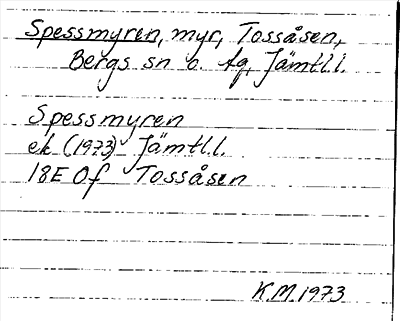 Spessmyren, myr, Tossåsen,
Bergs sn o. tg, Jämtl.l.
Spessmyren
ek (1973) Jämtl.l.
18E 0f Tossåsen
K.M.1973